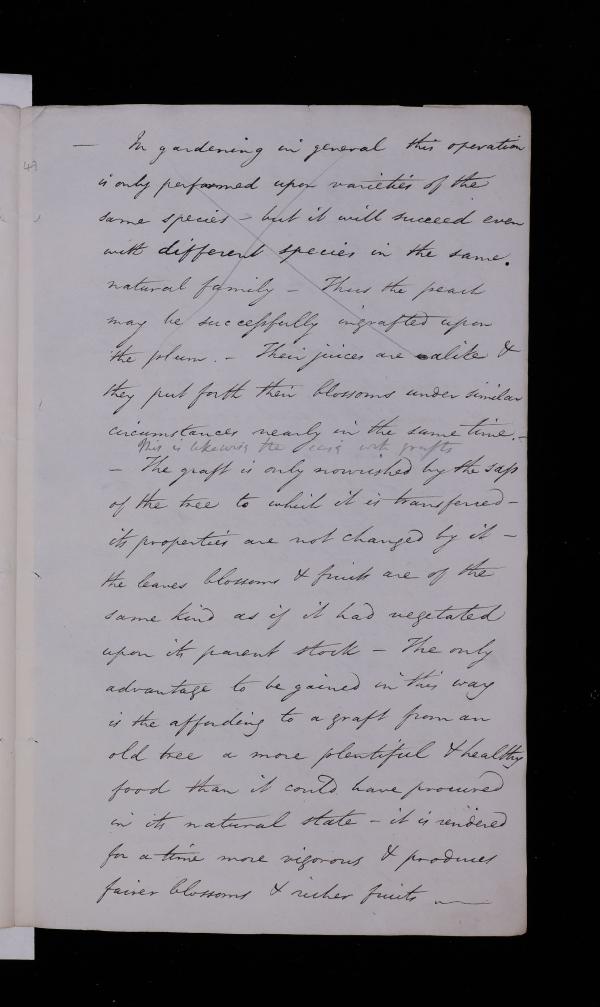 — In gardening in general this operation
49
is only performed upon varieties of the
same species – but it will succeed even
with different species in the same.
natural family – Thus the peach
may be successfully ingrafted upon
the plum. – Their juices are alike &
they put forth their blossoms under similar
circumstances nearly in the same time. –
This is likewise the case with grafts
– The graft is only nourished by the sap
of the tree to which it is transferred –
its properties are not changed by it –
the leaves blossoms & fruits are of the
same kind as if it had vegetated
upon its parent stock – The only
advantage to be gained in this way
is the affording to a graft from an
old tree a more plentiful & healthy
food than it could have procured
in its natural state – it is rendered
for a time more vigorous & produces
fairer blossoms & richer fruits —